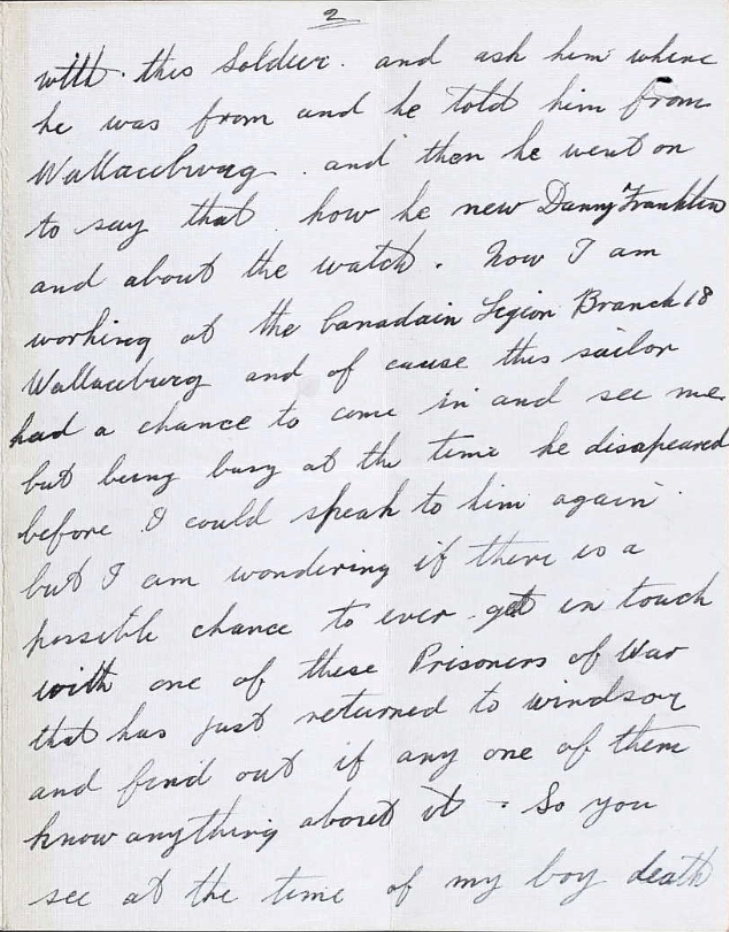 2
with this Soldier. and ask him where
he was from and he told him from
Wallaceburg. and then he went on
to say that how he new Danny Franklin
and about the watch. Now I am
working at the Canadain Legion Branch 18
Wallaceburg and of cause this sailor
had a chance to come in and see me.
but being busy at the time he disapeared
before I could speak to him again.
but I am wondering if there is a
possible chance to ever get in touch
with one of these Prisoners of War
that has just returned to windsor
and find out if any one of them
know anything about it. So you
see at the time of my boy death